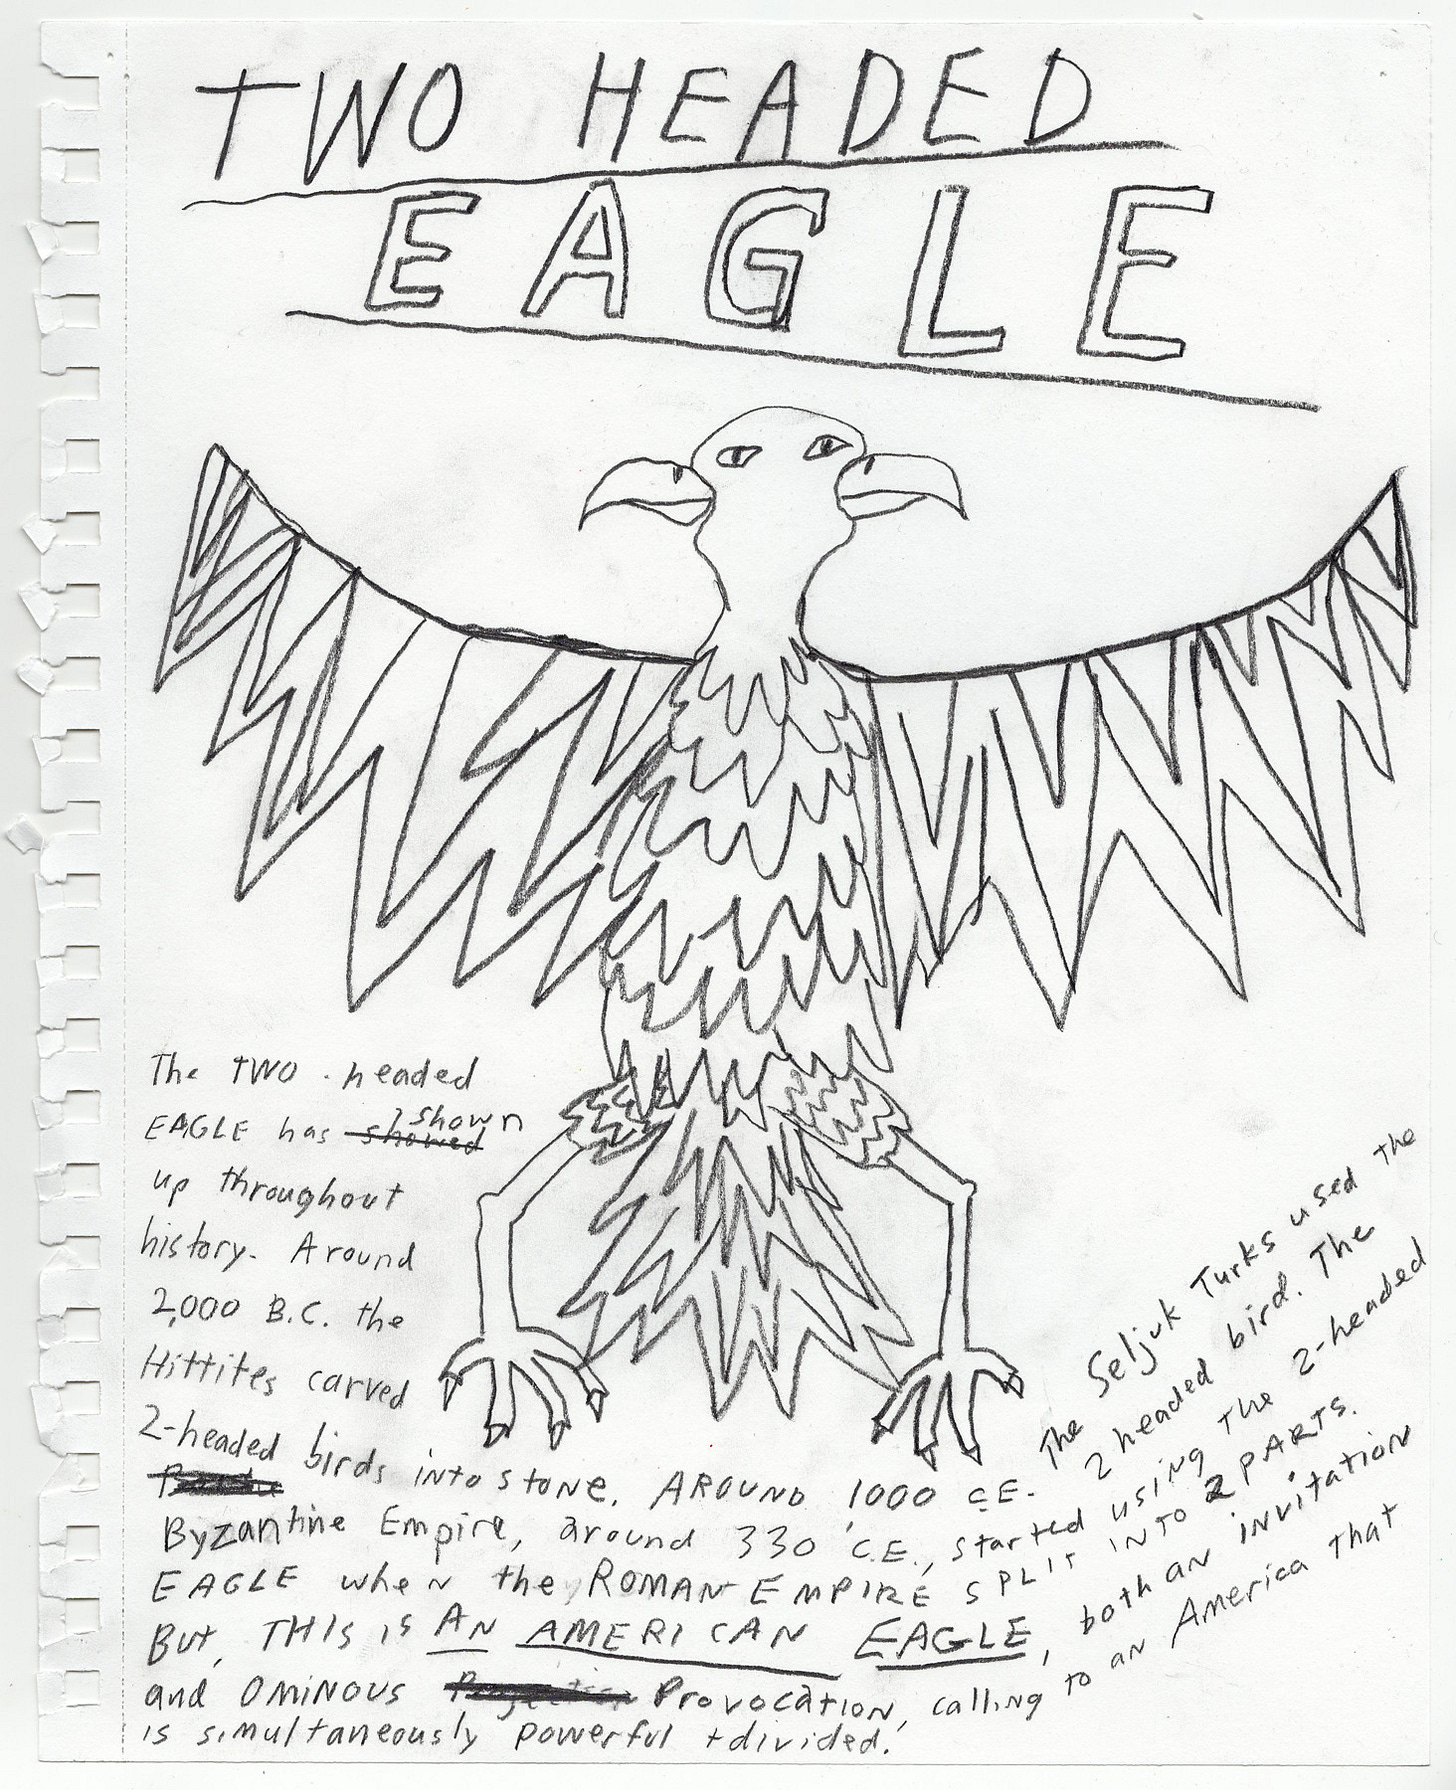 TWO HEADED
EAGLE
The TWO-headed
EAGLE has showed shown
up throughout
history. Around
2,000 B.C. the
Hittites carved
2-headed birds into stone. AROUND 1,000 C.E. The Seljuk Turks used the
2 headed bird. The
Byzantine Empire, around 330 C.E., started using The 2-headed
EAGLE when the ROMAN EMPIRE SPLIT INTO 2 PARTS.
But, THIS is AN AMERICAN EAGLE, both an invitation
and OMINOUS Provocation, calling to an America that
is simultaneously powerful + divided.